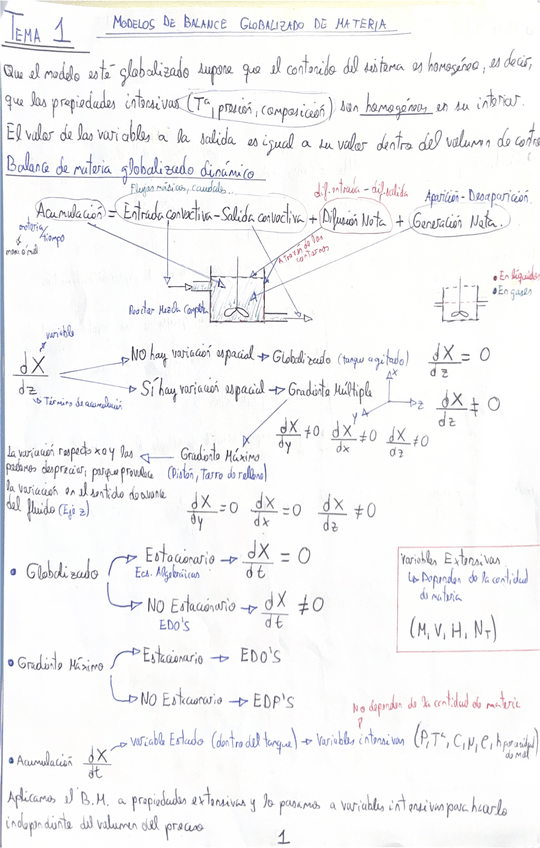 TEMA 1
MODELOS DE BALANCE GLOBALIZADO DE MATERIA
Que el modelo esté globalizado supone que el contenido del sistema es homogéneo, es decir,
que las propiedades intensivas (Tª, presión, composición) son homogéneas en su interior.
El valor de las variables a la salida es igual a su valor dentro del volumen de contro
Balance de materia globalizado dinámico
Flujos másicos, caudales...
dif. entrada - dif. salida
Aparición - Desaparición
Acumulación = Entrada convectiva - Salida convectiva + Difusión Neta + Generación Neta.
materia/tiempo
masa o mol
A través de los contornos
Reactor Mezcla Completa
• En líquidos
• En gases
variable
dX/dz
Término de acumulación
NO hay variación espacial → Globalizado (tanque agitado) dX/dz = 0
Sí hay variación espacial → Gradiente Múltiple
X
Y
Z
dX/dz ≠ 0
dX/dy ≠ 0 dX/dx ≠ 0 dX/dz ≠ 0
Gradiente Máximo
(Pistón, Torre de relleno)
La variación respecto x o y las
podemos despreciar, porque prevalece
la variación en el sentido de avance
del fluido (Eje z)
dX/dy = 0 dX/dx = 0 dX/dz ≠ 0
• Globalizado
Estacionario → dX/dt = 0
Ecs. Algebraicas
NO Estacionario → dX/dt ≠ 0
EDO'S
Variables Extensivas
↳ Dependen de la cantidad
de materia
(M, V, H, N_T)
• Gradiente Máximo
Estacionario → EDO'S
NO Estacionario → EDP'S
No dependen de la cantidad de materia
• Acumulación dX/dt
variable Estado (dentro del tanque) → Variables intensivas (P, Tª, C, N, ρ, h por unidad de mol)
Aplicamos el B.M. a propiedades extensivas y lo pasamos a variables intensivas para hacerlo
independiente del volumen del proceso
1